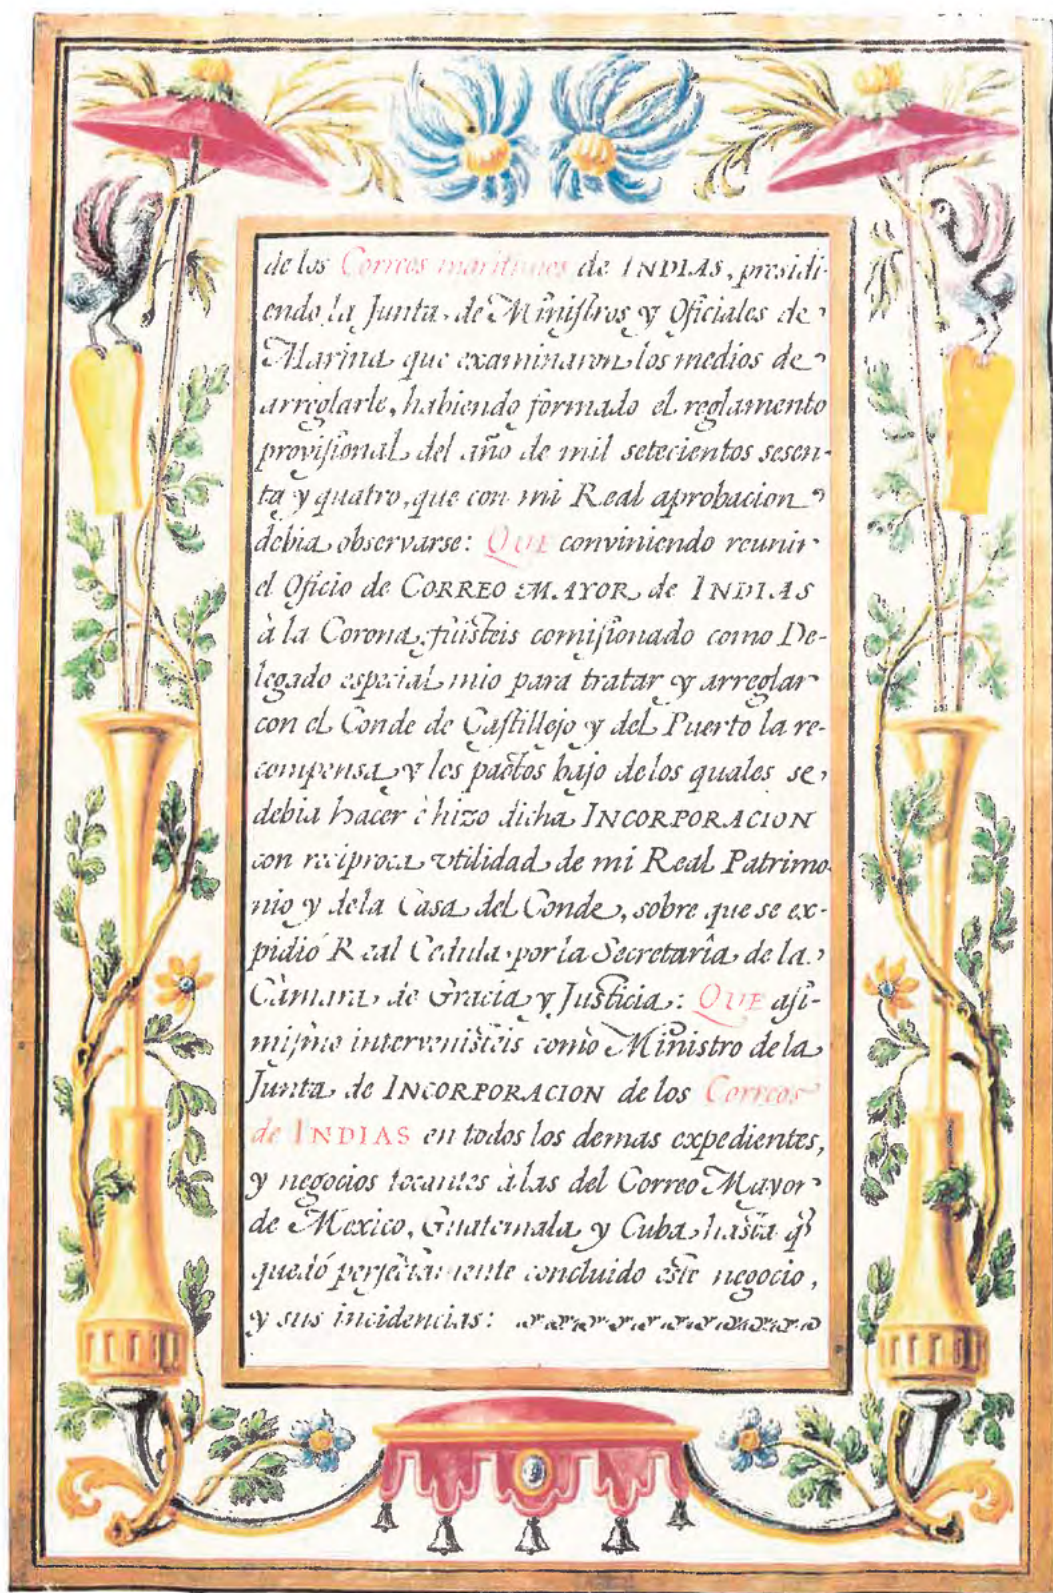 de los Correos maritimos de INDIAS, presidi-
endo la Junta de Miniſtros y Oficiales de
Marina que examinaron los medios de
arreglarle, habiendo formado el reglamento
proviſional del año de mil setecientos sesen-
ta y quatro, que con mi Real aprobacion
debia observarse: QUE conviniendo reunir
el Oficio de CORREO MAYOR de INDIAS
à la Corona, fuisteis comiſionado como De-
legado especial mio para tratar y arreglar
con el Conde de Caſtillejo y del Puerto la re-
compensa y los pactos bajo de los quales se
debia hacer è hizo dicha INCORPORACION
con reciproca vtilidad de mi Real Patrimo-
nio y dela Casa del Conde, sobre que se ex-
pidió Real Cedula por la Secretarîa de la
Càmara de Gracia y Justicia: QUE aſi-
miſmo intervenisteis como Ministro dela
Junta de INCORPORACION de los Correos
de INDIAS en todos los demas expedientes,
y negocios tocantes à las del Correo Mayor
de Mexico, Guatemala y Cuba hasta q̃
quedó perfectamente concluido este negocio,
y sus incidencias: